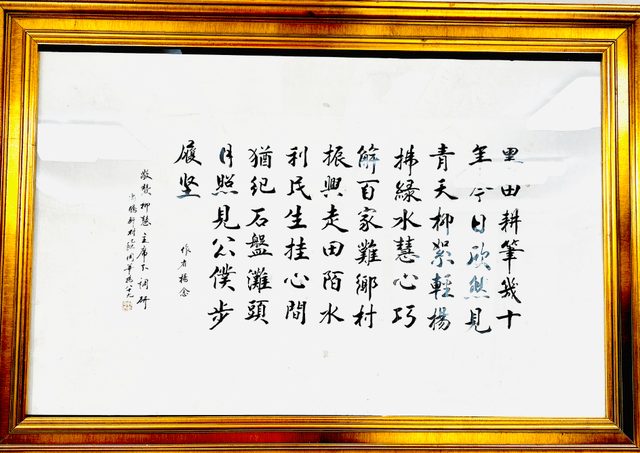 里田耕筆幾十
年今日欣然見
青天柳絮輕揚
拂綠水慧心巧
解百家難鄉村
振興走田陌水
利民生挂心間
猶紀石盤灘頭
月照見公僕步
履堅
作者楊念
敬赞柳慧主席下调研